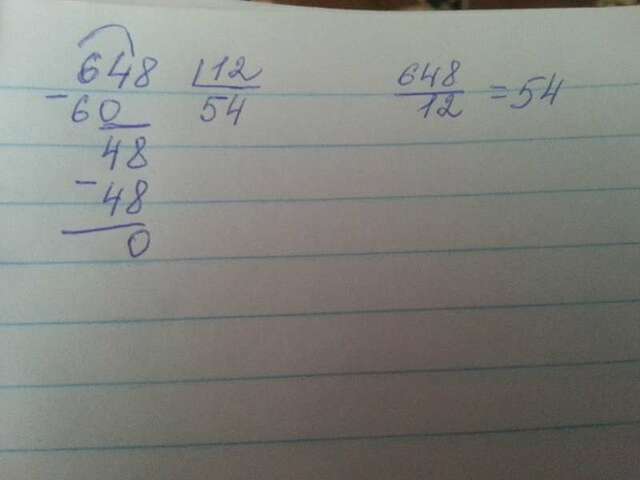 648 |12
-60 54
48
-48
0
648/12 = 54